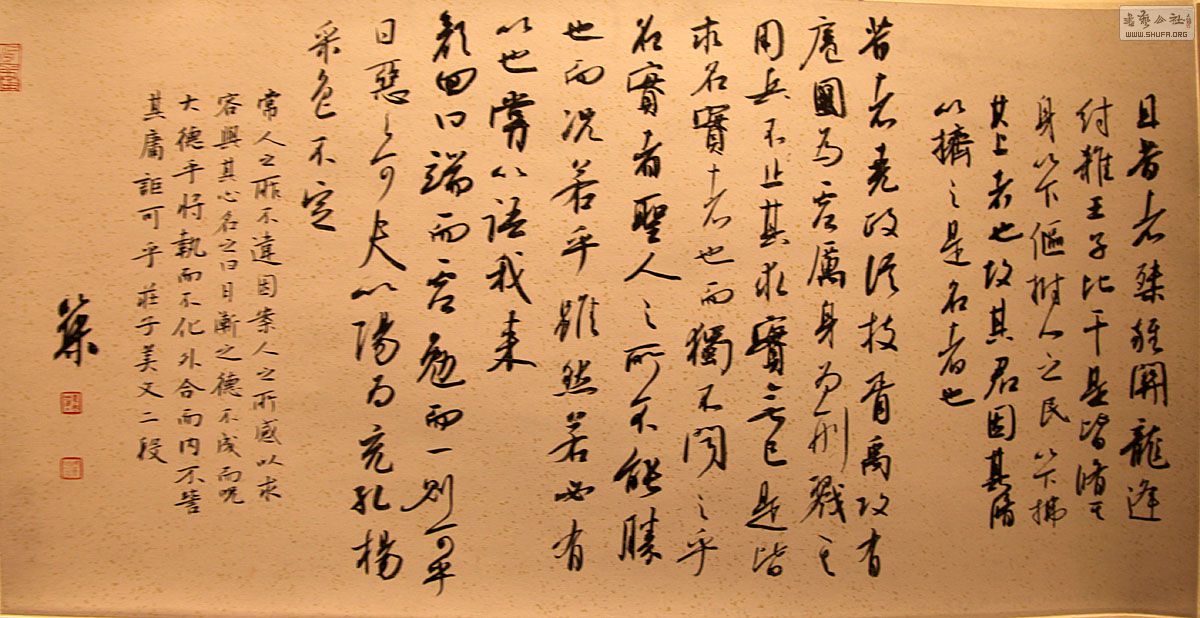 且昔者桀殺關龍逢
紂殺王子比干是皆脩其
身以下傴拊人之民以下拂
其上者也故其君因其脩
以擠之是名者也
昔者堯攻從枝胥禹攻有
扈國為虛厲身為刑戮其
用兵不止其求實無已是皆
求名實者也而獨不聞之乎
名實者聖人之所不能勝
也而況若乎雖然若必有
以也嘗以語我來
顏回曰端而虛勉而一則可乎
曰惡惡可夫以陽為充孔楊
采色不定
常人之所不違因案人之所感以求
容與其心名之曰日漸之德不成而況
大德乎將執而不化外合而內不訾
其庸詎可乎莊子美文二段
書藝公社
WWW.SHUFA.ORG